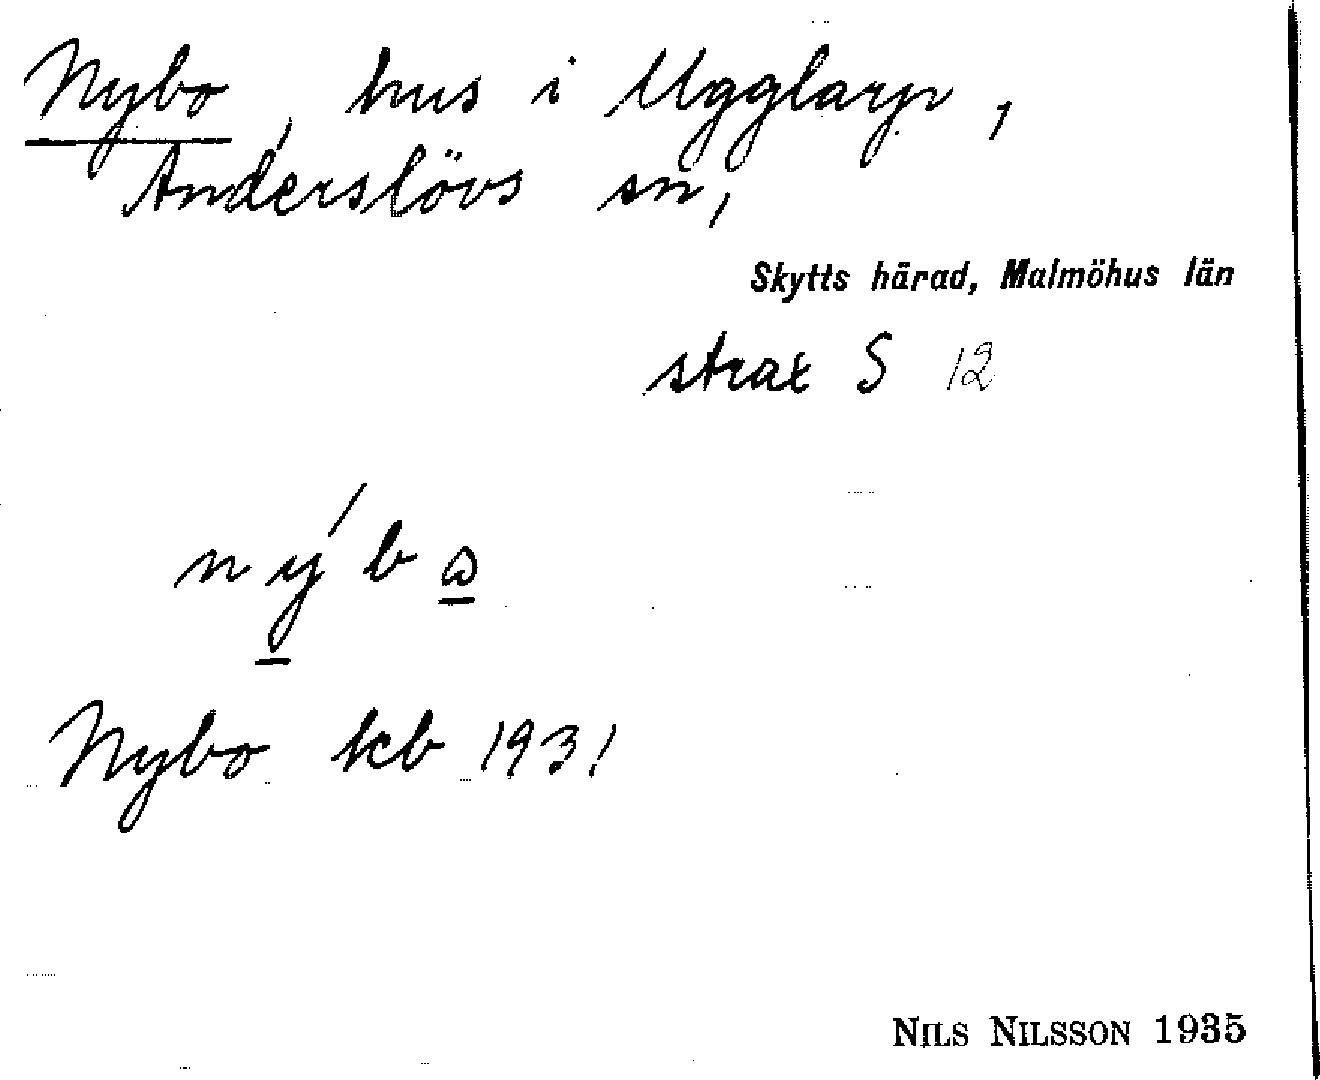 Nybo, hus i Ugglarp,
Anderslövs sn,
Skytts härad, Malmöhus län
strax S 12
nýbω
Nybo kb 1931
NILS NILSSON 1935